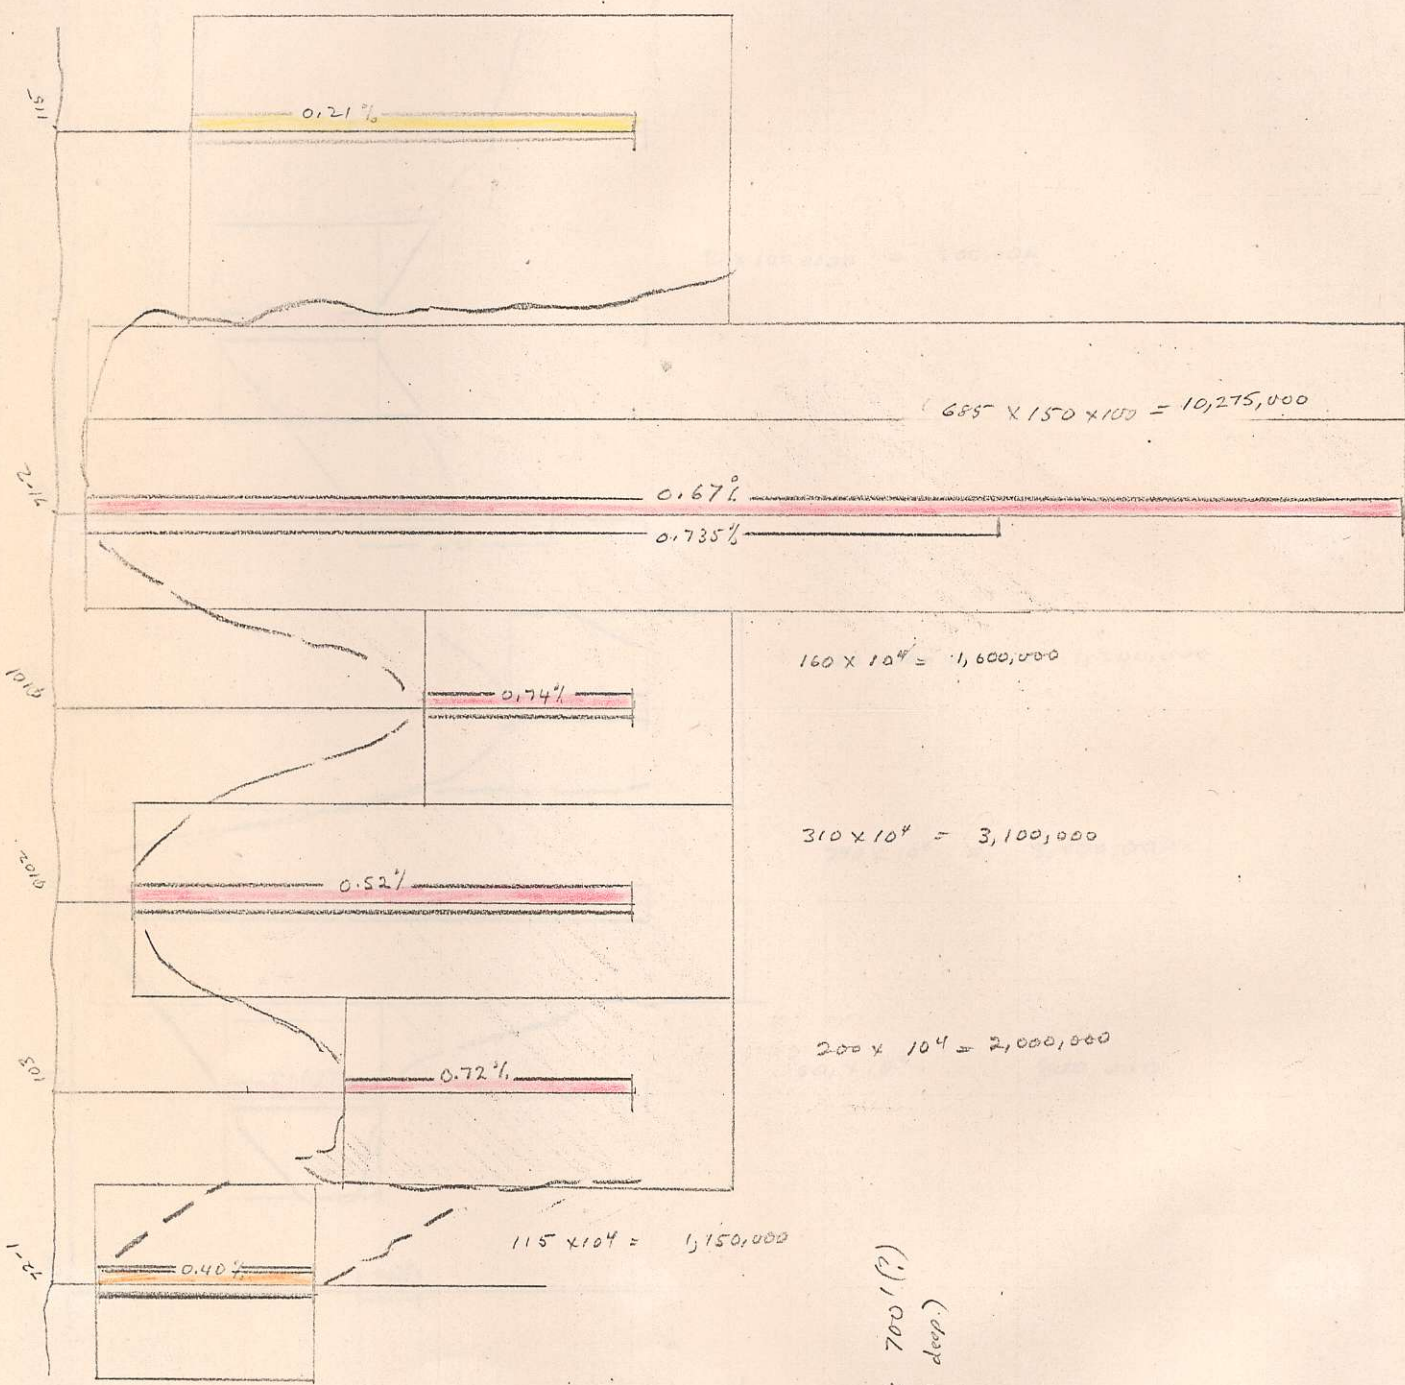 115
0.21%
685 x 150 x 100 = 10,275,000
91-2
0.67%
0.735%
160 x 10⁴ = 1,600,000
9101
0.74%
310 x 10⁴ = 3,100,000
9102
0.52%
200 x 10⁴ = 2,000,000
103
0.72%
115 x 10⁴ = 1,150,000
72-1
0.40%